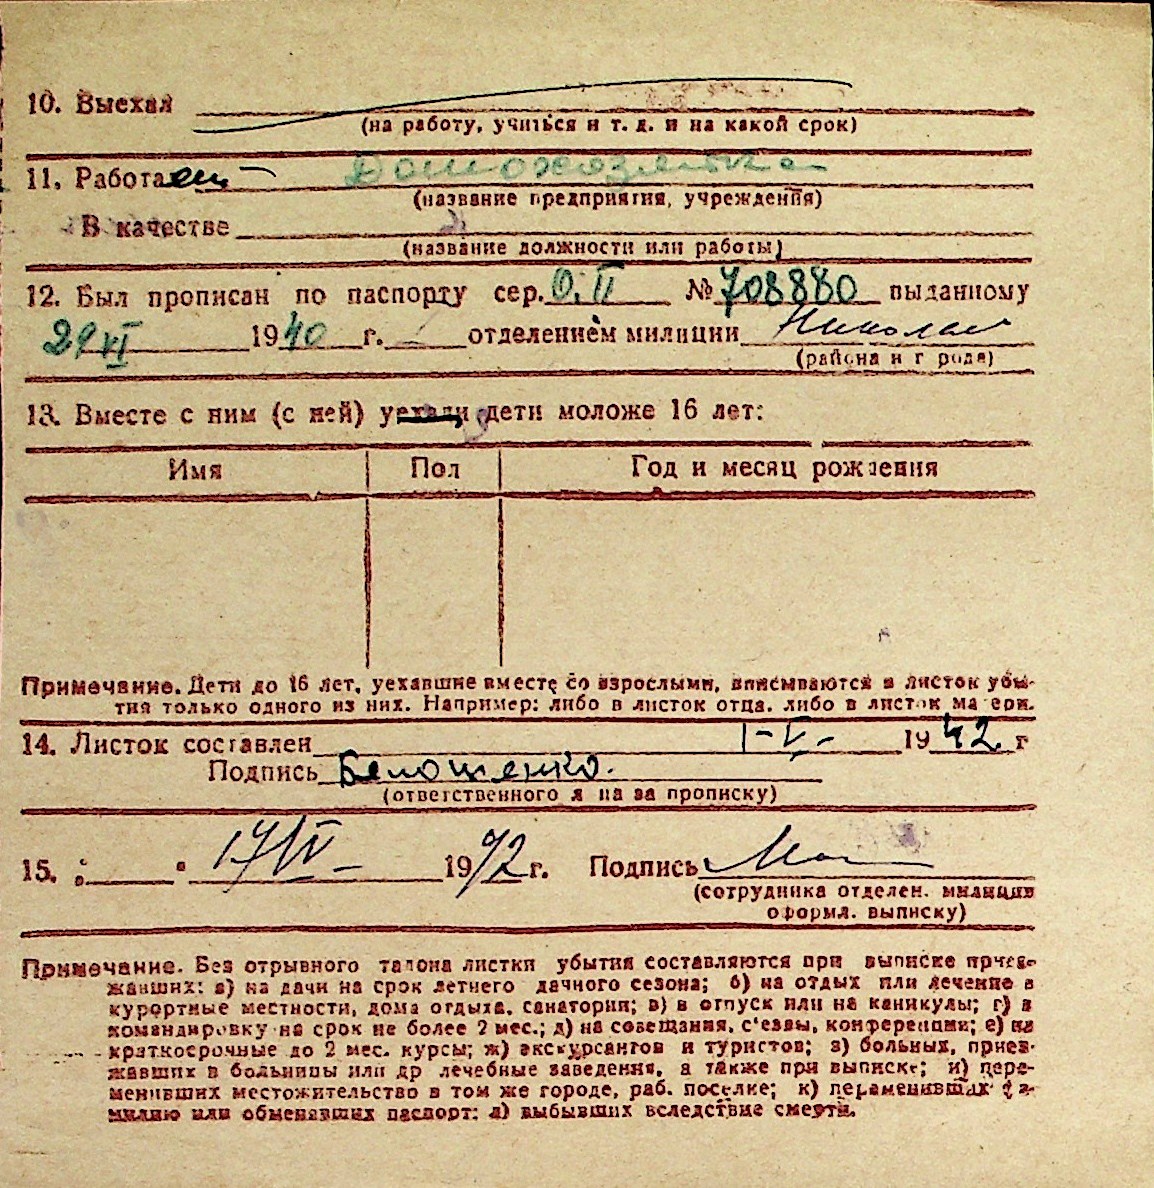 10. Выехал
(на работу, учиться и т. д. и на какой срок)
11. Работает Домохозяйка
(название предприятия, учреждения)
В качестве
(название должности или работы)
12. Был прописан по паспорту сер. О. II № 708880 выданному
29 VI 1940 г. отделением милиции Николаев
(района и г рода)
13. Вместе с ним (с ней) уехали дети моложе 16 лет:
Имя Пол Год и месяц рождения
Примечание. Дети до 16 лет, уехавшие вместе со взрослыми, вписываются в листок убы-
тия только одного из них. Например: либо в листок отца, либо в листок ма ери.
14. Листок составлен 1-V- 1942 г
Подпись Белошенко.
(ответственного л на за прописку)
15. 17/IV 1942 г. Подпись
(сотрудника отделен. милиции
оформл. выписку)
Примечание. Без отрывного талона листки убытия составляются при выписке приез-
жавших: а) на дачи на срок летнего дачного сезона; б) на отдых или лечение в
курортные местности, дома отдыха, санатории; в) в отпуск или на каникулы; г) в
командировку на срок не более 2 мес.; д) на совещания, с'езды, конференции; е) на
краткосрочные до 2 мес. курсы; ж) экскурсантов и туристов; з) больных, приез-
жавших в больницы или др лечебные заведения, а также при выписке; и) пере-
менивших местожительство в том же городе, раб. поселке; к) переменивших фа-
милию или обменявших паспорт; л) выбывших вследствие смерти.